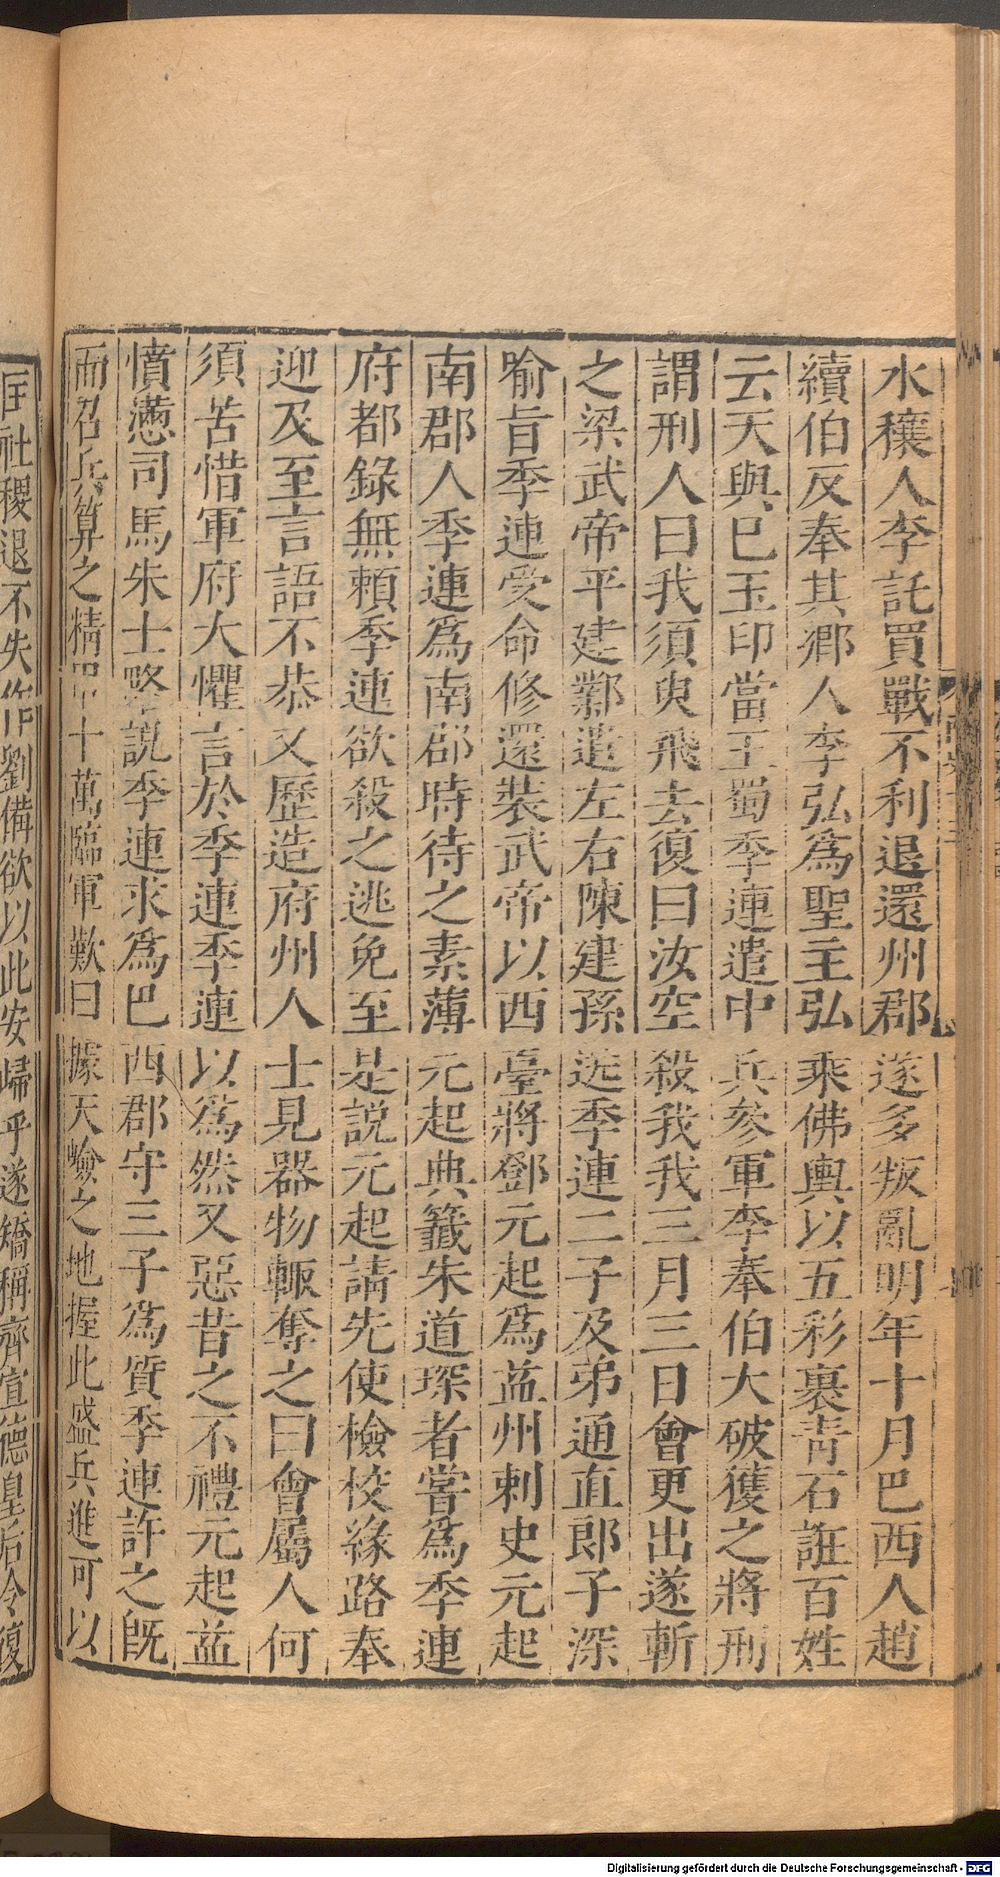 水穰人李託買戰不利退還州郡遂多叛亂明年十月巴西人趙
續伯反奉其鄉人李弘爲聖主弘乘佛輿以五彩裹靑石誑百姓
云天與巳玉印當王蜀季連遣中兵參軍李奉伯大破獲之將刑
謂刑人曰我須臾飛去復曰汝空殺我我三月三日會更出遂斬
之梁武帝平建鄴遣左右陳建孫送季連二子及弟通直郎子深
喻旨季連受命修還裝武帝以西臺將鄧元起爲益州剌史元起
南郡人季連爲南郡時待之素薄元起典籤朱道琛者嘗爲季連
府都錄無賴季連欲殺之逃免至是說元起請先使檢校緣路奉
迎及至言語不恭又歷造府州人士見器物輒奪之曰會屬人何
須苦惜軍府大懼言於季連季連以爲然又惡昔之不禮元起益
憤懣司馬朱士略說季連求爲巴西郡守三子爲質季連許之旣
而召兵算之精甲十萬臨軍歎曰據天嶮之地握此盛兵進可以
匡社稷退不失作劉備欲以此安歸乎遂矯稱齊宣德皇后令復
Digitalisierung gefördert durch die Deutsche Forschungsgemeinschaft - DFG